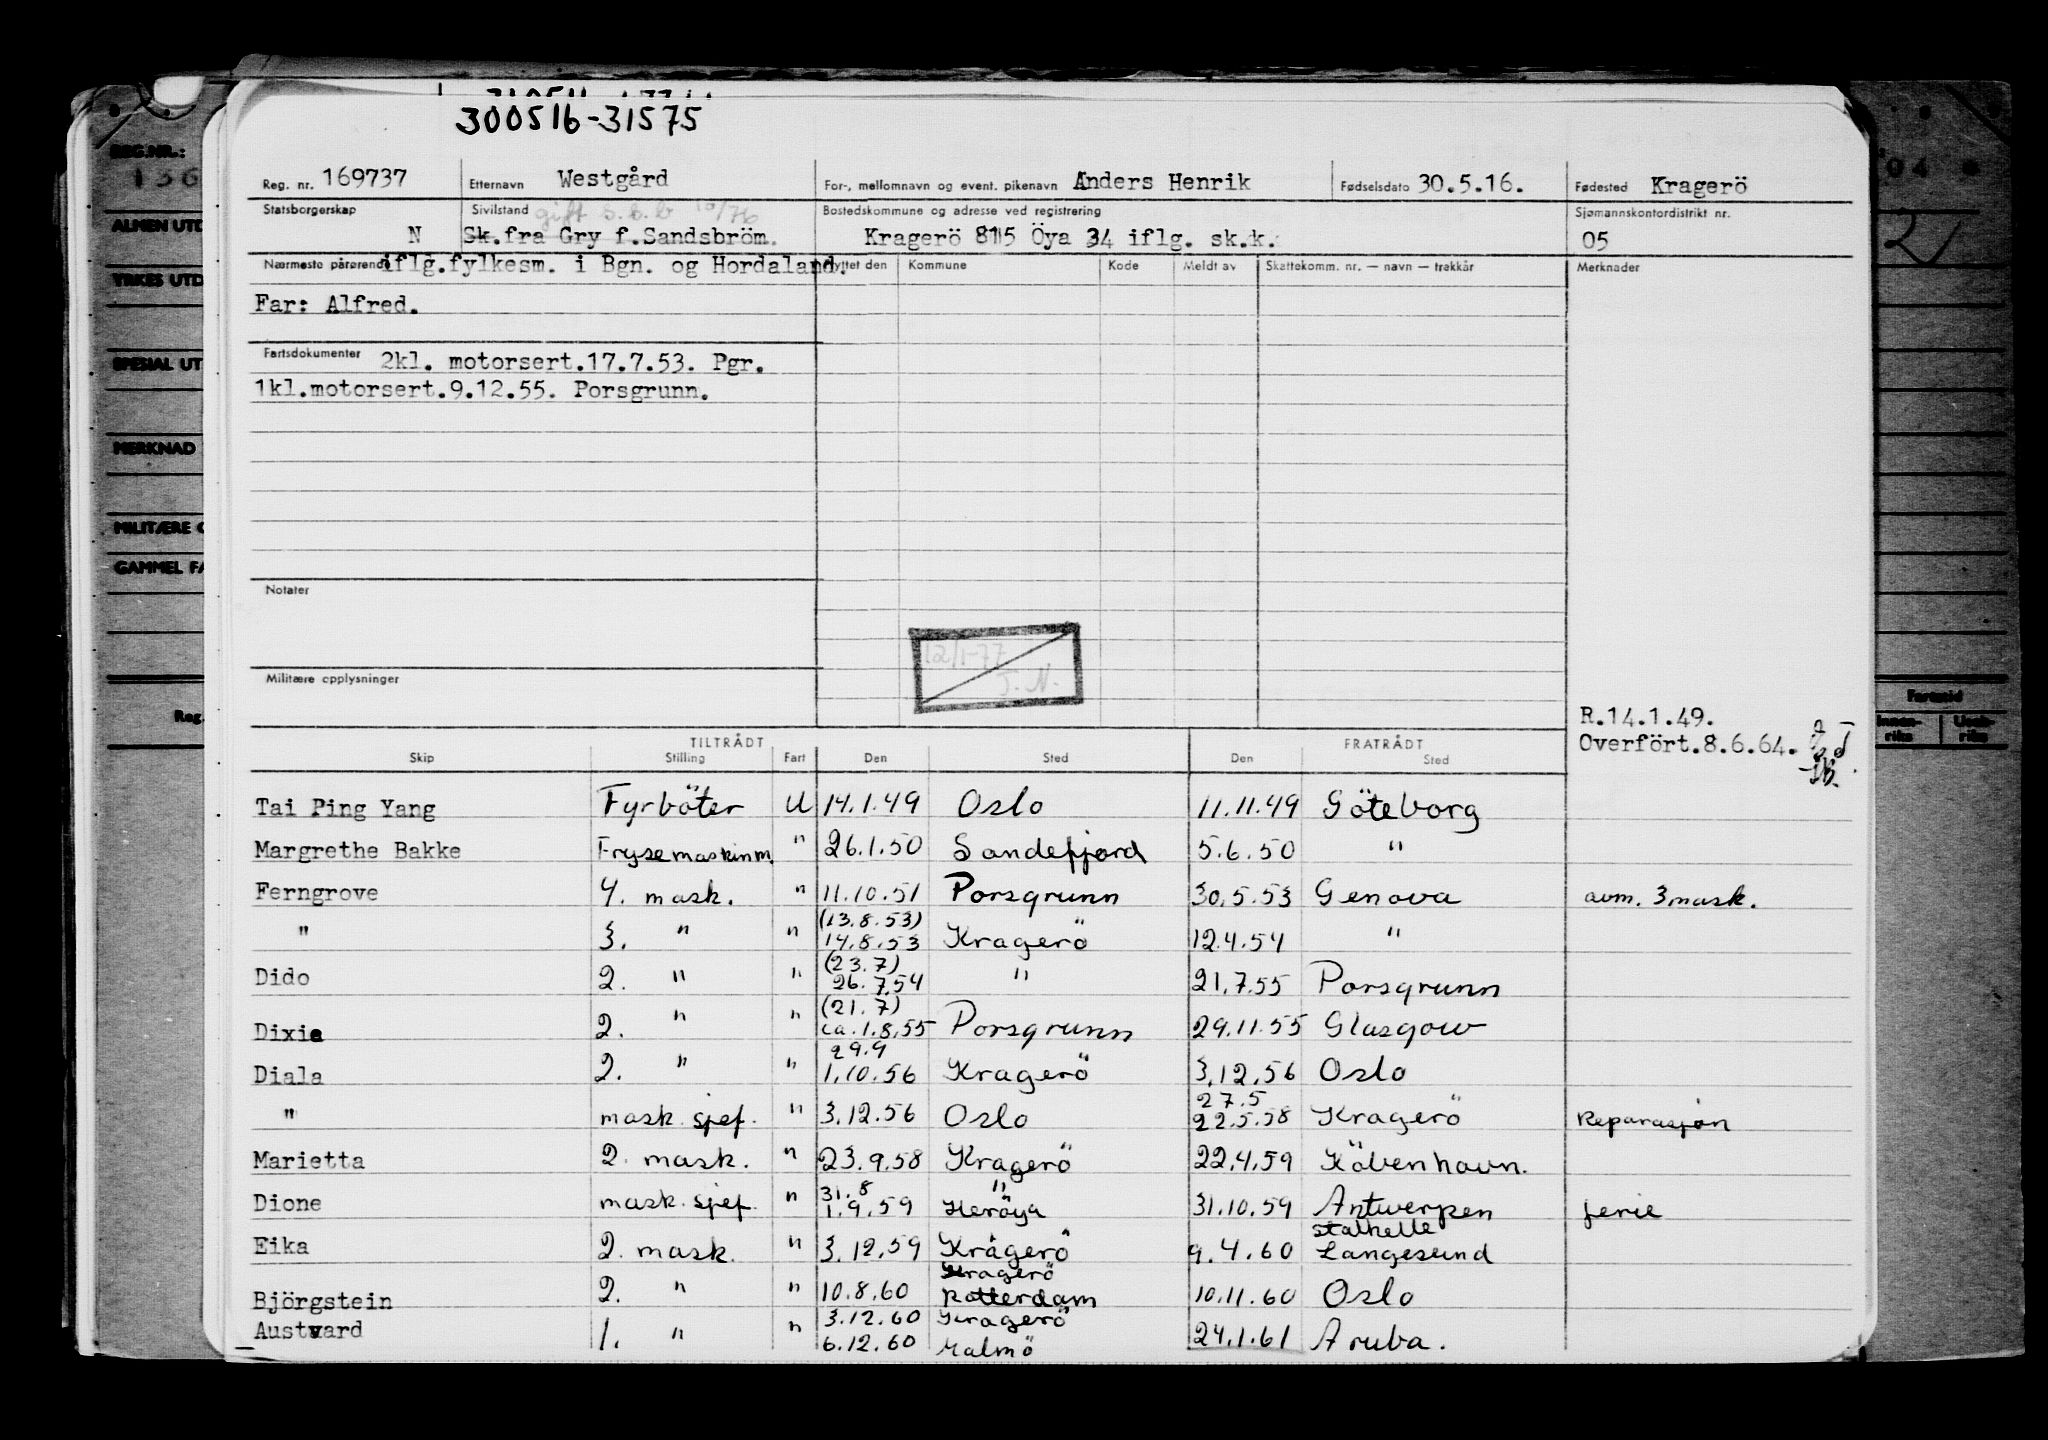 300516-31575
REG.NR.:
Reg. nr. 169737 Etternavn Westgård For-, mellomnavn og event. pikenavn Anders Henrik Fødselsdato 30.5.16. Fødested Kragerö
Statsborgerskap N Sivilstand gift s.b.b 10/76 Bostedskommune og adresse ved registrering Sjømannskontordistrikt nr.
Sk.fra Gry f.Sandsbröm. Kragerö 8115 Öya 34 iflg. sk.k. 05
Nærmeste pårørende iflg.fylkesm. i Bgn. og Hordaland. Flyttet den Kommune Kode Meldt av Skattekomm. nr. — navn — trekkår Merknader
Far: Alfred.
Fartsdokumenter 2kl. motorsert.17.7.53. Pgr.
1kl.motorsert.9.12.55. Porsgrunn.
Notater
12/1-77
J.N.
Militære opplysninger
R.14.1.49.
Overfört.8.6.64.
TILTRÅDT FRATRÅDT
Skip Stilling Fart Den Sted Den Sted
Tai Ping Yang Fyrböter U 14.1.49 Oslo 11.11.49 Göteborg
Margrethe Bakke Frysemaskinm. " 26.1.50 Sandefjord 5.6.50 "
Ferngrove 4. mask. " 11.10.51 Porsgrunn 30.5.53 Genova avm. 3mask.
(13.8.53)
" 3. " " 14.8.53 Kragerö 12.4.54 "
(23.7)
Dido 2. " " 26.7.54 " 21.7.55 Porsgrunn
(21.7)
Dixie 2. " " ca.1.8.55 Porsgrunn 29.11.55 Glasgow
29.9
Diala 2. " " 1.10.56 Kragerö 3.12.56 Oslo
27.5
" mask. sjef. " 3.12.56 Oslo 22.5.58 Kragerö Reparasjon
Marietta 2. mask. " 23.9.58 Kragerö 22.4.59 Köbenhavn.
31.8 "
Dione mask. sjef. " 1.9.59 Heröya 31.10.59 Antwerpen ferie
Stathelle
Eika 2. mask. " 3.12.59 Kragerö 9.4.60 Langesund
Kragerö
Björgstein 2. " " 10.8.60 Rotterdam 10.11.60 Oslo
3.12.60 Kragerö
Austvard 1. " " 6.12.60 Malmö 24.1.61 Aruba.
ALMEN UTD
YRKES UTD
SPESIAL UT
MERKNAD
MILITÆRE O
GAMMEL FA
Reg.
04
Fartstid
Innen-
riks
Uten-
riks